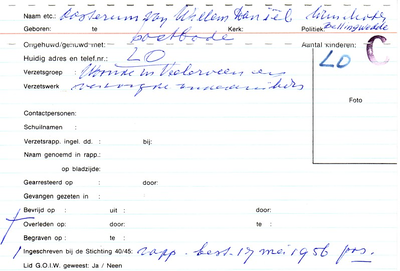 Naam etc.: Oosterum van Willem Daniël Winschoten
Geboren: te Kerk: Politiek: Bellingwedde
Ongehuwd/gehuwd met: postbode Aantal kinderen:
Huidig adres en telef.nr.: LO LO C
Verzetsgroep : Woonde in Veelerveen en
Verzetswerk : verzorgde onderduikers
Foto
Contactpersonen:
Schuilnamen :
Verzetsrapp. ingel. dd. : bij:
Naam genoemd in rapp.:
op bladzijde:
Gearresteerd op : door:
Gevangen gezeten in :
Bevrijd op : uit : door:
Overleden op: : door: te :
Begraven op : te :
Ingeschreven bij de Stichting 40/45: rapp. best. 17 mei 1956 pos.
Lid G.O.I.W. geweest: Ja / Neen